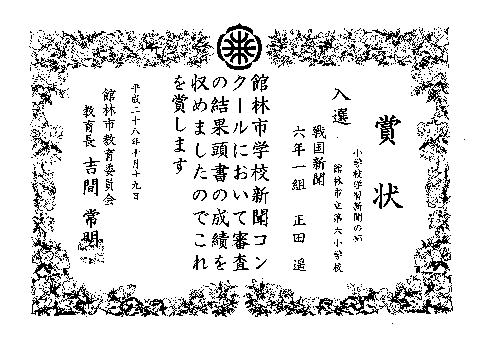 賞状
小学校学習新聞の部
館林市立第六小学校
入選
戦国新聞
六年一組 正田 遥
館林市学校新聞コン
クールにおいて審査
の結果頭書の成績を
収めましたのでこれ
を賞します
平成二十八年十月十九日
館林市教育委員会
教育長 吉間 常明